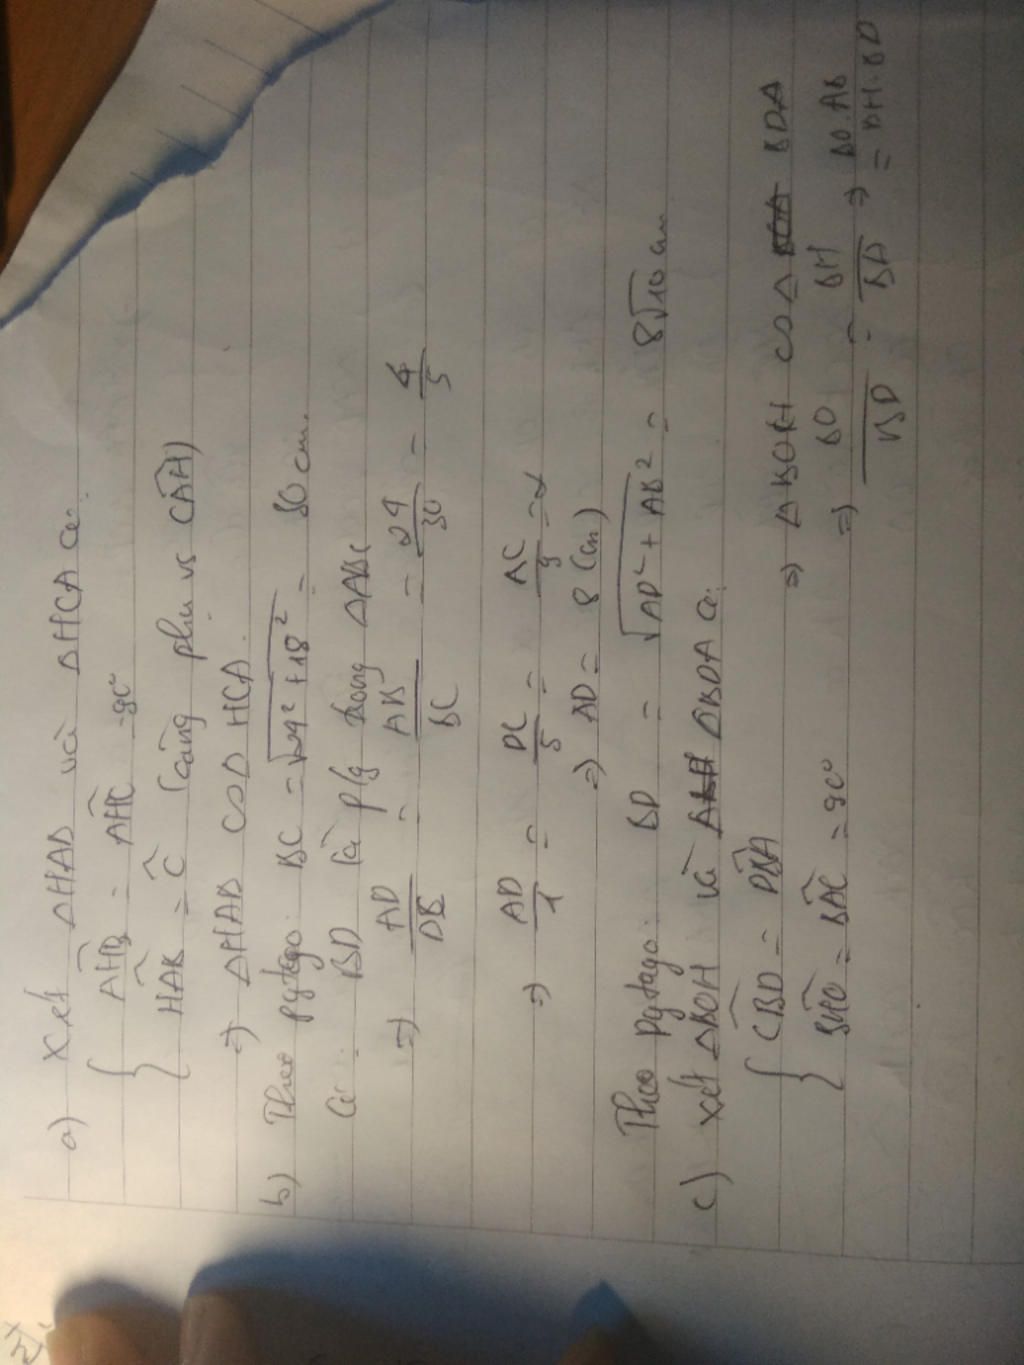 a) Xét ΔHAB và ΔHCA có:
{ AHB = AHC = 90°
HAB = C (cùng phụ vs CAH)
=> ΔHAB ∽ Δ HCA.
b) Theo pytago: BC = √24² + 18² = 30 cm.
Có: BD là p/g trong ΔABC
=> AD/DB = AB/BC = 24/30 = 4/5
=> AD/4 = DC/5 = AC/9 = 2
=> AD = 8 (cm)
Theo Pytago: BD = √AD² + AB² = 8√10 cm
c) xét ΔBOH và ΔBDA có:
{ CBD = DBA
BHO = BAC = 90°
=> ΔBOH ∽ Δ BDA
=> BO/BD = BH/BA => BO.AB
= BH.BD